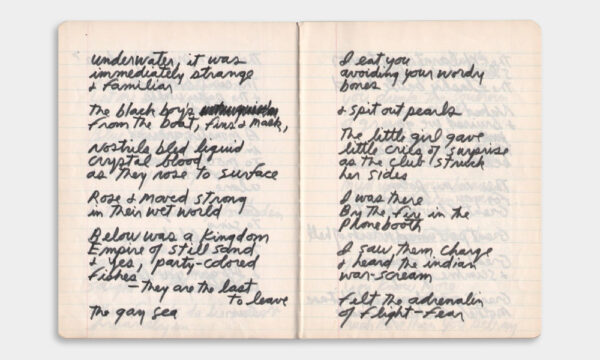 underwater, it was
immediately strange
& familiar
The black boy's
From the boat, fins & mask,
nostrils bled liquid
crystal blood
as they rose to surface
Rose & moved strong
in their wet world
Below was a Kingdom
Empire of still sand
& yes, party-colored
fishes
—they are the last
to leave
the gay sea
I eat you
avoiding your wordy
bones
& spit out pearls
The little girl gave
little cries of surprise
as the club struck
her sides
I was there
By the fire in the
Phonebooth
I saw them charge
& heard the indian
war-scream
felt the adrenalin
of flight-fear